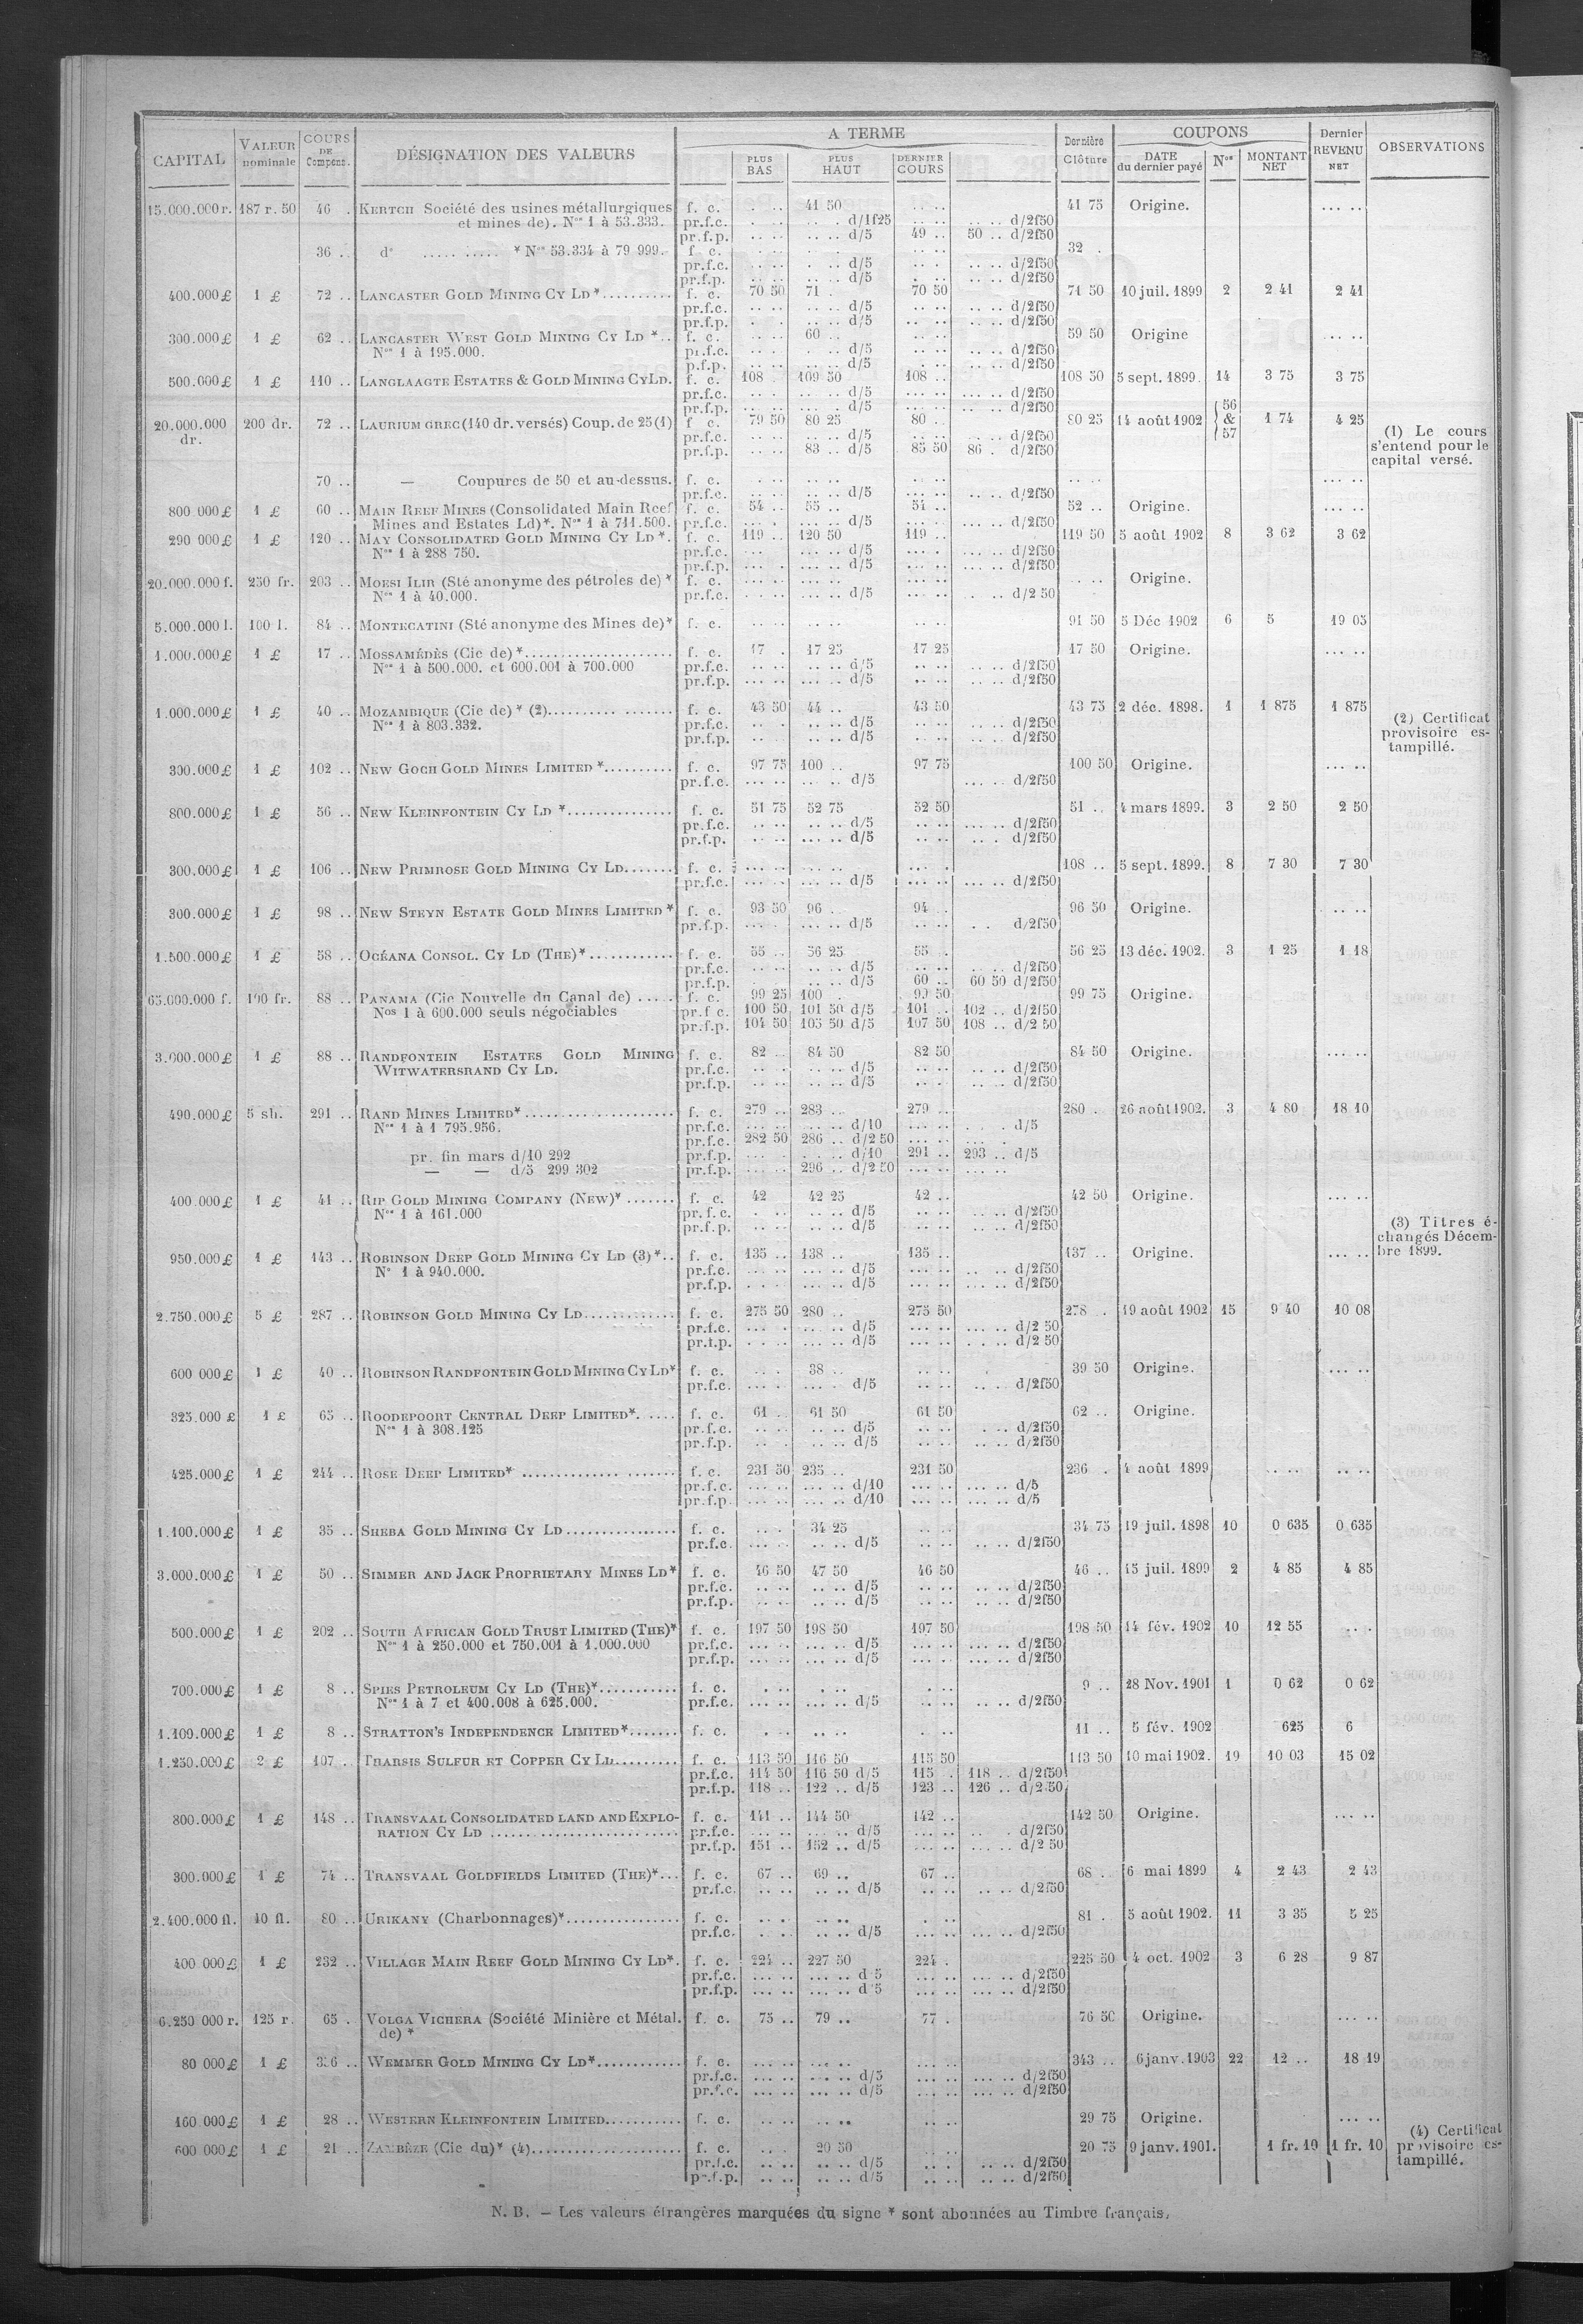 CAPITAL | VALEUR nominale | COURS DE Compens. | DÉSIGNATION DES VALEURS | A TERME | PLUS BAS | PLUS HAUT | DERNIER COURS | Dernière Clôture | COUPONS | DATE du dernier payé | Nos | MONTANT NET | Dernier REVENU NET | OBSERVATIONS
15.000.000 r. 187 r. 50 46 . KERTCH Société des usines métallurgiques f. c. . .. 41 50 .. .. 41 75 Origine. ... ..
et mines de). Nos 1 à 53.333. pr.f.c. d/1f25 d/2f50
pr.f.p. d/5 49 .. 50 .. d/2f50
36 .. do ..... ..... * Nos 53.334 à 79 999. f c. 32 .
pr.f.c. d/5 d/2f50
pr.f.p. d/5 d/2f50
400.000 £ 1 £ 72 .. LANCASTER GOLD MINING CY LD *.......... f. c. 70 50 71 . 70 50 71 50 10 juil. 1899 2 2 41 2 41
pr.f.c. d/5 d/2f50
pr.f.p. d/5 d/2f50
300.000 £ 1 £ 62 .. LANCASTER WEST GOLD MINING CY LD *.. f. c. 60 .. 59 50 Origine ... ..
Nos 1 à 195.000. pr.f.c. d/5 d/2f50
p.f.p. d/5 d/2f50
500.000 £ 1 £ 110 .. LANGLAAGTE ESTATES & GOLD MINING CY LD. f. c. 108 . 109 50 108 .. 108 50 5 sept. 1899. 14 3 75 3 75
pr.f.c. d/5 d/2f50
pr.f.p. d/5 d/2f50
20.000.000 dr. 200 dr. 72 .. LAURIUM GREC (140 dr. versés) Coup. de 25 (1) f c. 79 50 80 25 80 .. 80 25 14 août 1902 56 & 57 1 74 4 25
pr.f.c. d/5 d/2f50
pr.f.p. 83 .. d/5 85 50 86 . d/2f50
(1) Le cours
s'entend pour le
capital versé.
70 .. — Coupures de 50 et au-dessus. f. c. ... ..
pr.f.c. d/5 d/2f50
800 000 £ 1 £ 60 .. MAIN REEF MINES (Consolidated Main Reef f. c. 54 .. 55 .. 54 .. 52 .. Origine. ... ..
Mines and Estates Ld)*. Nos 1 à 711.500. pr.f.c. d/5 d/2f50
290 000 £ 1 £ 120 .. MAY CONSOLIDATED GOLD MINING CY LD *. f. c. 119 .. 120 50 119 .. 119 50 5 août 1902 8 3 62 3 62
Nos 1 à 288 750. pr.f.c. d/5 d/2f50
pr.f.p. d/5 d/2f50
20.000.000 f. 250 fr. 203 .. MOESI ILIR (Sté anonyme des pétroles de) * f. c. Origine.
Nos 1 à 40.000. pr.f.c. d/5 d/2 50
5.000.000 l. 100 l. 84 .. MONTECATINI (Sté anonyme des Mines de)* f. c. 91 50 5 Déc 1902 6 5 19 05
1.000.000 £ 1 £ 17 .. MOSSAMÉDÈS (Cie de) *.................... f. c. 17 . 17 25 17 25 17 50 Origine. ... ..
Nos 1 à 500.000. et 600.001 à 700.000 pr.f.c. d/5 d/2f50
pr.f.p. d/5 d/2f50
1.000.000 £ 1 £ 40 .. MOZAMBIQUE (Cie de) * (2).......... ....... f. c. 43 50 44 .. 43 50 43 75 2 déc. 1898. 1 1 875 1 875
Nos 1 à 803.332. pr.f.c. d/5 d/2f50
pr.f.p. d/5 d/2f50
(2) Certificat
provisoire es-
tampillé.
300.000 £ 1 £ 102 .. NEW GOCH GOLD MINES LIMITED *.......... f. c. 97 75 100 .. 97 75 100 50 Origine. ... ..
pr.f.c. d/5 d/2f50
800.000 £ 1 £ 56 .. NEW KLEINFONTEIN CY LD *............... f. c. 51 75 52 75 52 50 51 .. 4 mars 1899. 3 2 50 2 50
pr.f.c. d/5 d/2f50
pr.f.p. d/5 d/2f50
300.000 £ 1 £ 106 .. NEW PRIMROSE GOLD MINING CY LD....... f. c. 108 .. 5 sept. 1899. 8 7 30 7 30
pr.f.c. d/5 d/2f50
300.000 £ 1 £ 98 .. NEW STEYN ESTATE GOLD MINES LIMITED * f. c. 93 50 96 .. 94 .. 96 50 Origine. .. ..
pr.f.p. d/5 d/2f50
1.500.000 £ 1 £ 58 .. OCÉANA CONSOL. CY LD (THE)*............ f. c. 55 .. 56 25 55 . 56 25 13 déc. 1902. 3 1 25 1 18
pr.f.c. d/5 d/2f50
pr.f.p. d/5 60 .. 60 50 d/2f50
65.000.000 f. 100 fr. 88 .. PANAMA (Cie Nouvelle du Canal de) ..... f. c. 99 25 100 . 99 50 99 75 Origine.
Nos 1 à 600.000 seuls négociables pr.f c. 100 50 101 50 d/5 101 .. 102 .. d/2f50
pr.f.p. 104 50 105 50 d/5 107 50 108 .. d/2 50
3.000.000 £ 1 £ 88 .. RANDFONTEIN ESTATES GOLD MINING f. c. 82 .. 84 50 82 50 84 50 Origine. ... ..
WITWATERSRAND CY LD. pr.f.c. d/5 d/2f50
pr.f.p. d/5 d/2f50
490.000 £ 5 sh. 291 .. RAND MINES LIMITED*..................... f. c. 279 .. 283 ... 279 .. 280 . 26 août 1902. 3 4 80 18 10
Nos 1 à 1 795.956. pr.f.c. d/10 d/5
pr.f.c. 282 50 286 .. d/2 50
pr. fin mars d/10 292 pr.f.p. d/10 291 .. 293 .. d/5
— — d/5 299 302 pr.f.p. 296 .. d/2 50
400.000 £ 1 £ 41 .. RIP GOLD MINING COMPANY (NEW)* ....... f. c. 42 42 25 42 .. 42 50 Origine. ... ..
Nos 1 à 161.000 pr.f.c. d/5 d/2f50
pr.f.p. d/5 d/2f50
(3) Titres é-
changés Décem-
bre 1899.
950.000 £ 1 £ 143 .. ROBINSON DEEP GOLD MINING CY LD (3)*.. f. c. 135 .. 138 .. 135 .. 137 .. Origine. ... ..
No 1 à 940.000. pr.f.c. d/5 d/2f50
pr.f.p. d/5 d/2f50
2.750.000 £ 5 £ 287 .. ROBINSON GOLD MINING CY LD............. f. c. 275 50 280 .. 275 50 278 . 19 août 1902 15 9 40 10 08
pr.f.c. d/5 d/2 50
pr.f.p. d/5 d/2 50
600 000 £ 1 £ 40 .. ROBINSON RANDFONTEIN GOLD MINING CY LD* f. c. 38 .. 39 50 Origine. ... ..
pr.f.c. d/5 d/2f50
325.000 £ 1 £ 65 .. ROODEPOORT CENTRAL DEEP LIMITED*. ..... f. c. 61 .. 61 50 61 50 62 .. Origine.
Nos 1 à 308.125 pr.f.c. d/5 d/2f50
pr.f.p. d/5 d/2f50
425.000 £ 1 £ 244 .. ROSE DEEP LIMITED* .............. ....... f. c. 231 50 235 .. 231 50 236 . 4 août 1899 .. .. .. ..
pr.f.c. d/10 d/5
pr.f.p. d/10 d/5
1.100.000 £ 1 £ 35 .. SHEBA GOLD MINING CY LD................ f. c. 34 25 34 75 19 juil. 1898 10 0 635 0 635
pr.f.c. d/5 d/2f50
3.000.000 £ 1 £ 50 .. SIMMER AND JACK PROPRIETARY MINES LD* f. c. 46 50 47 50 46 50 46 .. 15 juil. 1899 2 4 85 4 85
pr.f.c. d/5 d/2f50
pr.f.p. d/5 d/2f50
500.000 £ 1 £ 202 .. SOUTH AFRICAN GOLD TRUST LIMITED (THE)* f. c. 197 50 198 50 197 50 198 50 14 fév. 1902 10 12 55 .. .
Nos 1 à 250.000 et 750.001 à 1.000.000 pr.f.c. d/5 d/2f50
pr.f.p. d/5 d/2f50
700.000 £ 1 £ 8 .. SPIES PETROLEUM CY LD (THE)*........... f. c. 9 .. 28 Nov. 1901 1 0 62 0 62
Nos 1 à 7 et 400.008 à 625.000. pr.f.c. d/5 d/2f50
1.100.000 £ 1 £ 8 .. STRATTON'S INDEPENDENCE LIMITED*....... f. c. 11 .. 5 fév. 1902 625 6
1.250.000 £ 2 £ 107 .. THARSIS SULFUR ET COPPER CY LD......... f. c. 113 50 116 50 115 50 113 50 10 mai 1902. 19 10 03 15 02
pr.f.c. 114 50 116 50 d/5 115 . 118 .. d/2f50
pr.f.p. 118 .. 122 .. d/5 123 .. 126 .. d/2 50
800.000 £ 1 £ 148 .. TRANSVAAL CONSOLIDATED LAND AND EXPLO- f. c. 141 .. 144 50 142 .. 142 50 Origine. ... ..
RATION CY LD .......................... pr.f.c. d/5 d/2f50
pr.f.p. 151 .. 152 .. d/5 d/2 50
300.000 £ 1 £ 74 .. TRANSVAAL GOLDFIELDS LIMITED (THE)*... f. c. 67 .. 69 .. 67 .. 68 .. 6 mai 1899 4 2 43 2 43
pr.f.c. d/5 d/2f50
2.400.000 fl. 40 fl. 80 .. URIKANY (Charbonnages)*................ f. c. 81 . 5 août 1902. 11 3 35 5 25
pr.f.c. d/5 d/2f50
400 000 £ 1 £ 232 .. VILLAGE MAIN REEF GOLD MINING CY LD*. f. c. 224 .. 227 50 224 . 225 50 4 oct. 1902 3 6 28 9 87
pr.f.c. d 5 d/2f50
pr.f.p. d 5 d/2f50
6.250 000 r. 125 r. 65 . VOLGA VICHERA (Société Minière et Métal. f. c. 75 .. 79 .. 77 . 76 50 Origine. ... ..
de) *
80 000 £ 1 £ 336 .. WEMMER GOLD MINING CY LD*............ f. c. 343 .. 6 janv. 1903 22 12 .. 18 19
pr.f.c. d/5 d/2f50
pr.f.c. d/5 d/2f50
160 000 £ 1 £ 28 .. WESTERN KLEINFONTEIN LIMITED........... f. c. 29 75 Origine. ... ..
600 000 £ 1 £ 21 .. ZAMBÈZE (Cie du)* (4)..................... f. c. 20 50 20 75 9 janv. 1901. 1 fr. 10 1 fr. 10
pr.f.c. d/5 d/2f50
pr.f.p. d/5 d/2f50
(4) Certificat
provisoire es-
tampillé.
N. B. — Les valeurs étrangères marquées du signe * sont abonnées au Timbre français.